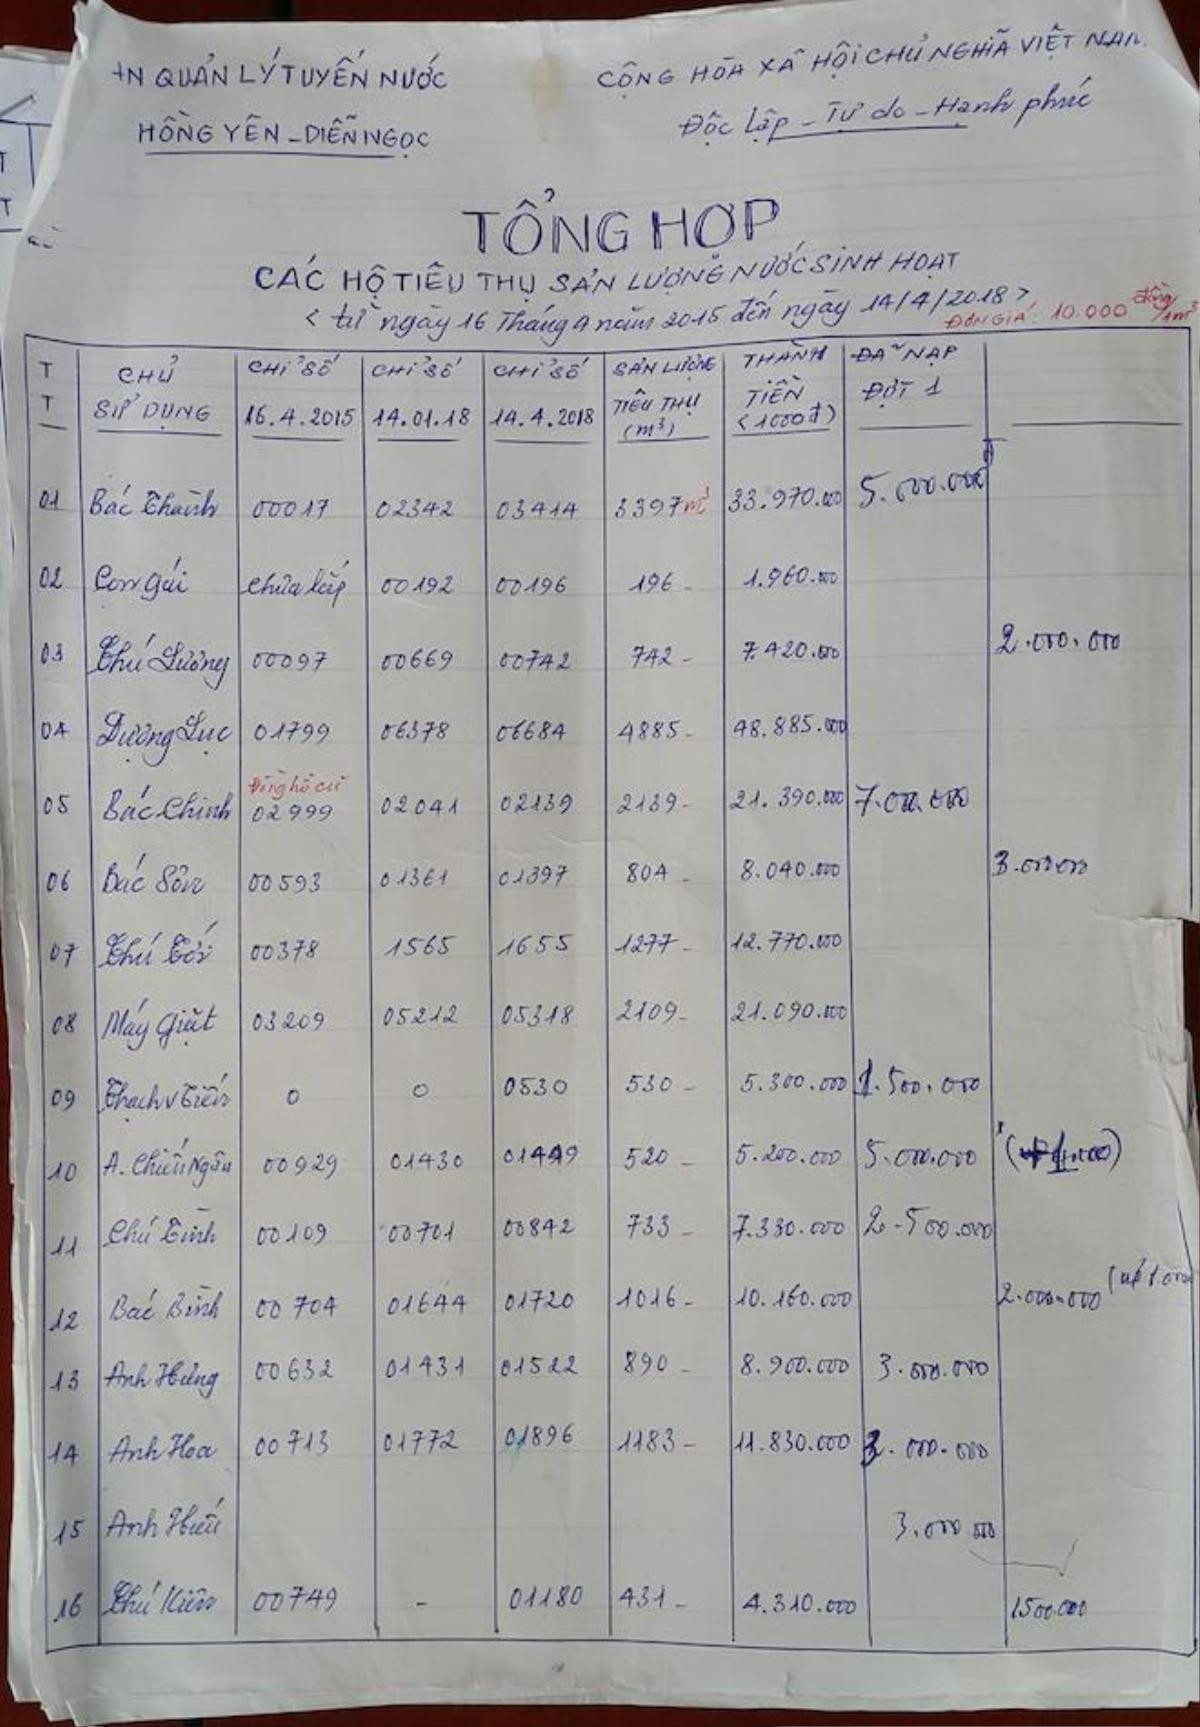 +N QUẢN LÝ TUYẾN NƯỚC
HỒNG YÊN - DIỄN NGỌC
CỘNG HÒA XÃ HỘI CHỦ NGHĨA VIỆT NAM
Độc lập - Tự do - Hạnh phúc
TỔNG HỢP
CÁC HỘ TIÊU THỤ SẢN LƯỢNG NƯỚC SINH HOẠT
< từ ngày 16 Tháng 4 năm 2015 đến ngày 14/4/2018 >
ĐƠN GIÁ: 10.000 đồng/1m³
TT CHỦ SỬ DỤNG CHỈ SỐ 16.4.2015 CHỈ SỐ 14.01.18 CHỈ SỐ 14.4.2018 SẢN LƯỢNG TIÊU THỤ (m³) THÀNH TIỀN <1000đ) ĐÃ NẠP ĐỢT 1
01 Bác Thành 00017 02342 03414 3397 m³ 33.970.000 5.000.000đ
02 Con gái chưa lắp 00192 00196 196 - 1.960.000
03 Chú Lương 00097 00669 00742 742 - 7.420.000 2.000.000
04 Dượng Lục 01799 06378 06684 4885 - 48.885.000
05 Bác Chinh Đồng hồ cũ 02999 02041 02139 2139 - 21.390.000 7.000.000
06 Bác Sơn 00593 01361 01397 804 - 8.040.000 3.000000
07 Chú 00378 1565 1655 1277 - 12.770.000
08 Máy Giặt 03209 05212 05318 2109 - 21.090.000
09 Thạch v Tiến 0 0 0530 530 - 5.300.000 1.500.000
10 A. Chiến Ngân 00929 01430 01449 520 - 5.200.000 5.000.000
11 Chú Tình 00109 00701 00842 733 - 7.330.000 2.500.000
12 Bác Bình 00704 01644 01720 1016 - 10.160.000 2.000.000
13 Anh Hưng 00632 01431 01522 890 - 8.900.000 3.000.000
14 Anh Hoa 00713 01772 01896 1183 - 11.830.000 3.000.000
15 Anh Hiếu 3.000.000
16 Chú Kiên 00749 - 01180 431 - 4.310.000 1500.000